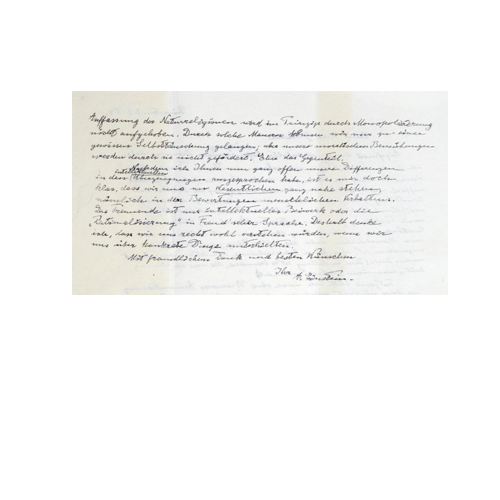 Auffassung der Naturreligionen wird im Prinzip durch Monopolisierung
nicht aufgehoben. Durch solche Mauern können wir nur zu einer
gewissen Selbsttäuschung gelangen; aber unsere moralischen Bemühungen
werden durch sie nicht gefördert. Eher das Gegenteil.
Nachdem ich Ihnen nun ganz offen unsere Differenzen
in den intellektuellen Überzeugungen ausgesprochen habe, ist es mir doch
klar, dass wir uns im Wesentlichen ganz nahe stehen,
nämlich in den Bewertungen menschlichen Verhaltens.
Das Trennende ist nur intellektuelles Beiwerk oder die
„Rationalisierung" in Freud'scher Sprache. Deshalb denke
ich, dass wir uns recht wohl verstehen würden, wenn wir
uns über konkrete Dinge unterhielten.
Mit freundlichem Dank und besten Wünschen
Ihr A. Einstein.